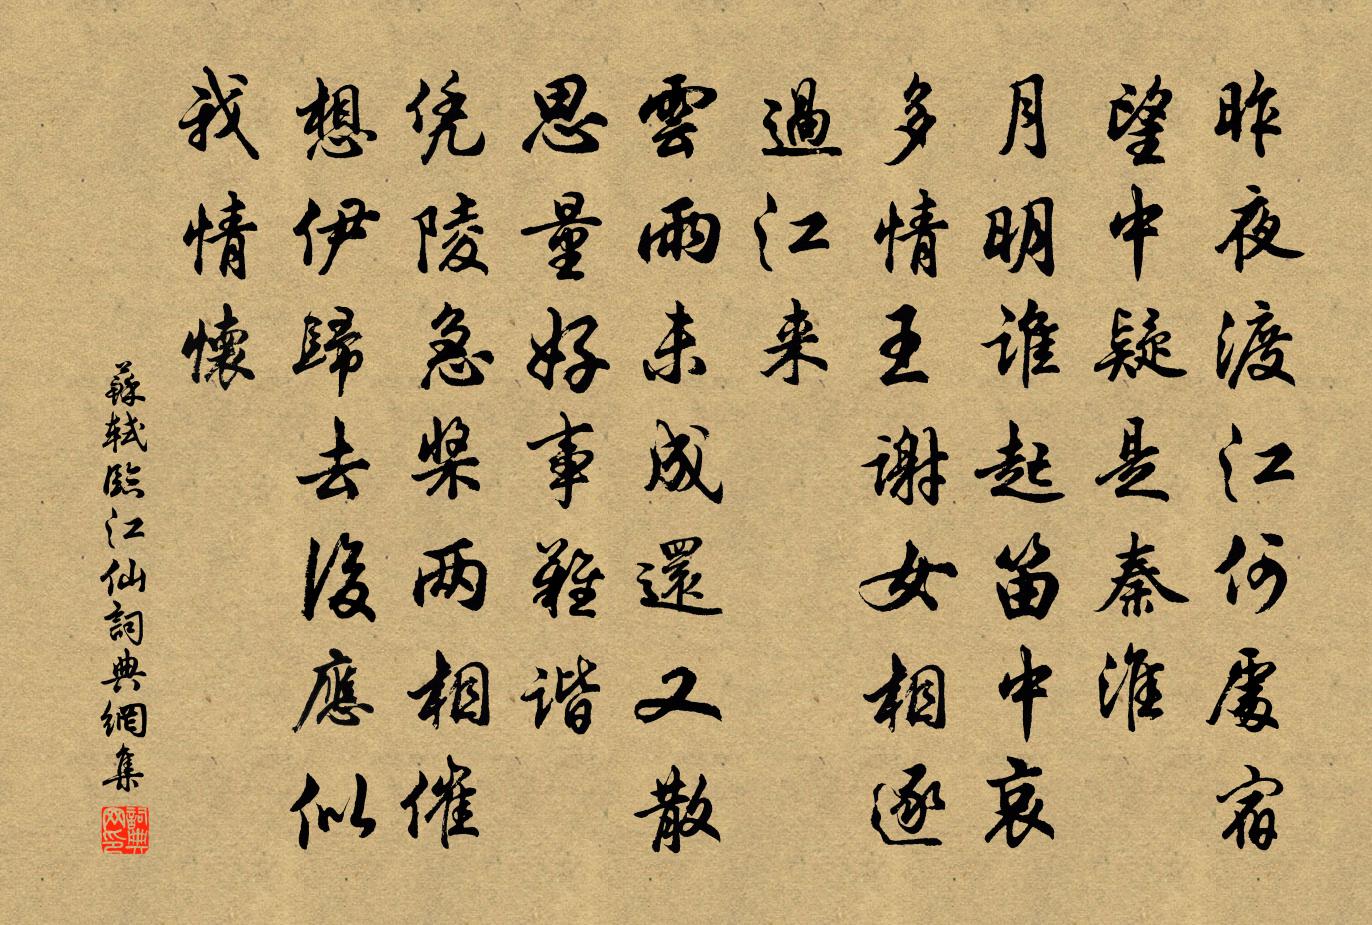 昨夜渡江何處宿
望中疑是秦淮
月明谁起笛中哀
多情王謝女相逐
過江来
雲雨未成還又散
思量好事難谐
凭陵急槳两相催
想伊歸去後應似
我情懷
蘇軾臨江仙詞典網集
詞典网印